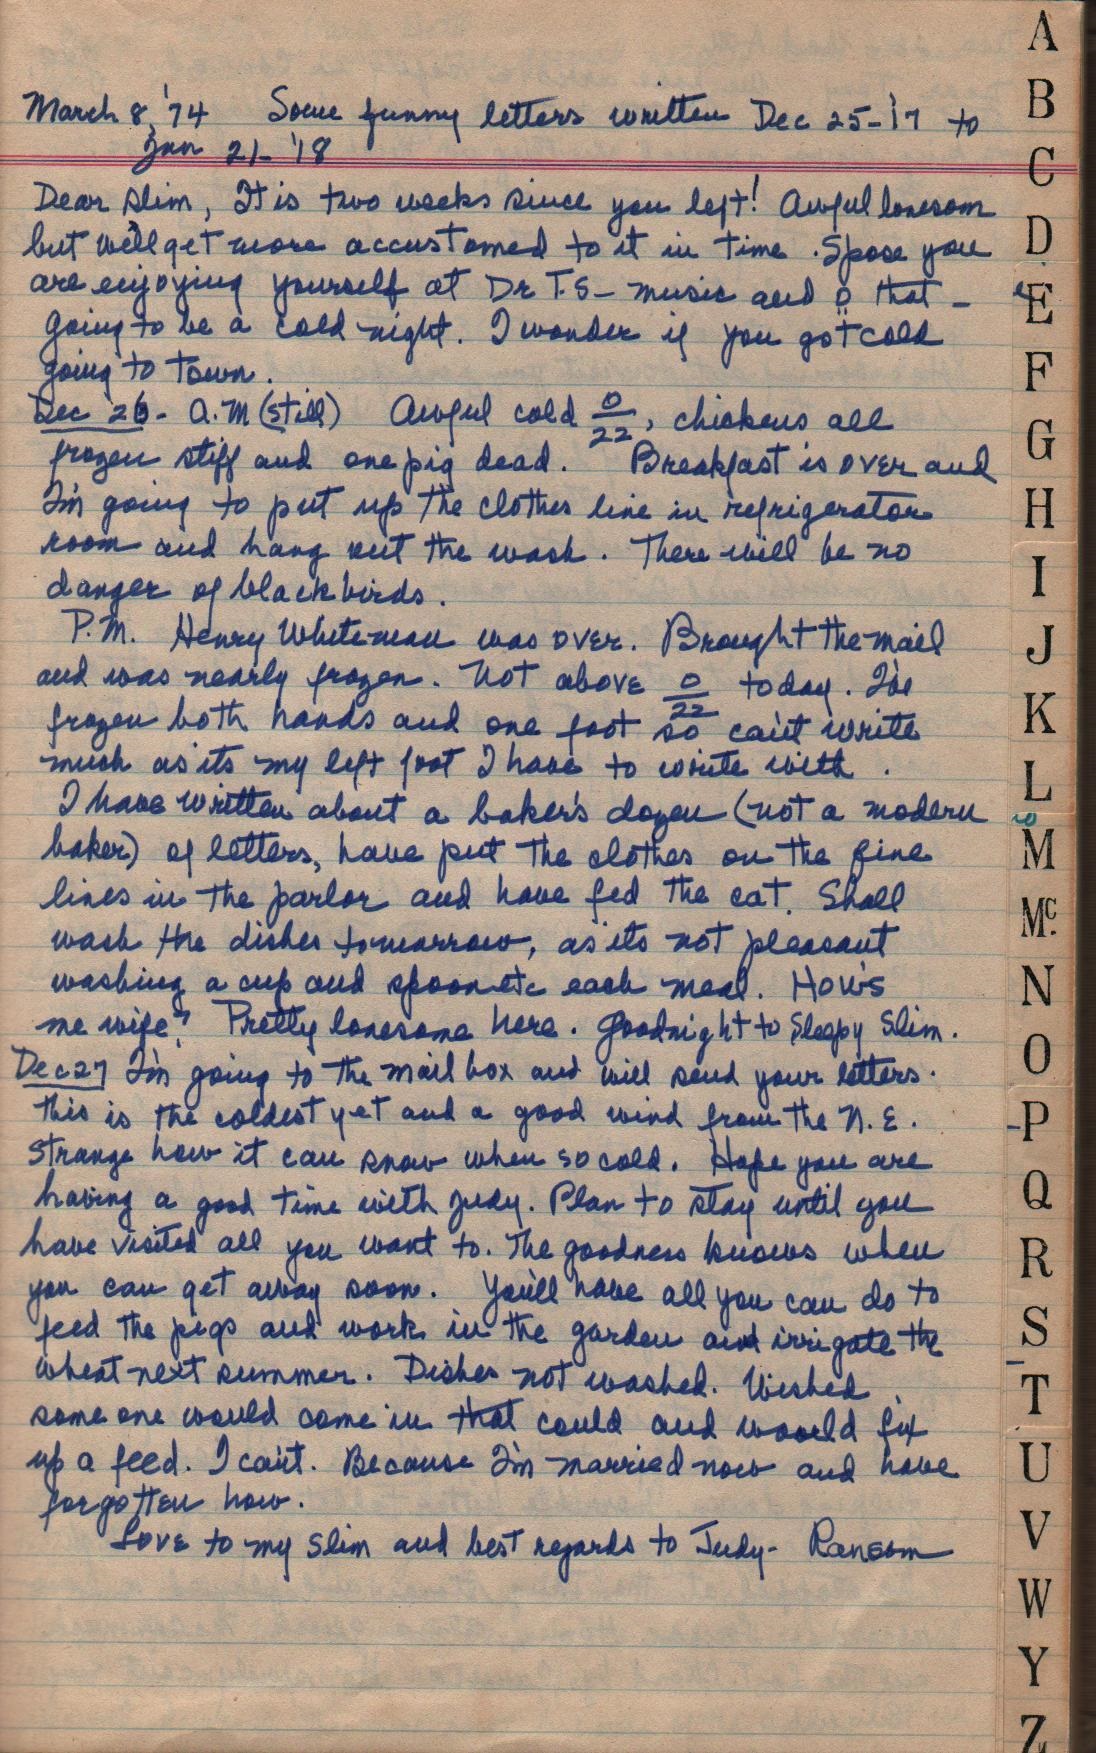 March 8, '74 Some funny letters written Dec 25-'17 to
Jan 21-'18
Dear Slim, It is two weeks since you left! Awful lonesom
but we'll get more accustomed to it in time. Spose you
are enjoying yourself at Dr T.S- music and that -
going to be a cold night. I wonder if you got cold
going to town.
Dec 26- A.M (still) Awful cold 0/22, chickens all
frozen stiff and one pig dead. Breakfast is over and
I'm going to put up the clothes line in refrigerator
room and hang out the wash. There will be no
danger of blackbirds.
P.M. Henry Whiteman was over. Brought the mail
and was nearly frozen. Not above 0/22 today. I've
frozen both hands and one foot so can't write
much as its my left foot I have to write with.
I have written about a baker's dozen (not a modern
baker) of letters, have put the clothes on the fine
lines in the parlor and have fed the cat. Shall
wash the dishes tomorrow, as its not pleasant
washing a cup and spoon etc each meal. How's
me wife? Pretty lonesome here. Goodnight to Sleepy Slim.
Dec 27 I'm going to the mail box and will send your letters.
This is the coldest yet and a good wind from the N.E.
Strange how it can snow when so cold. Hope you are
having a good time with Judy. Plan to stay until you
have visited all you want to. The goodness knows when
you can get away soon. You'll have all you can do to
feed the pigs and work in the garden and irrigate the
wheat next summer. Dishes not washed. Wished
some one would come in that could and would fix
up a feed. I can't. Because I'm married now and have
forgotten how.
Love to my Slim and best regards to Judy- Ransom
A
B
C
D
E
F
G
H
I
J
K
L
M
Mc.
N
O
P
Q
R
S
T
U
V
W
Y
Z